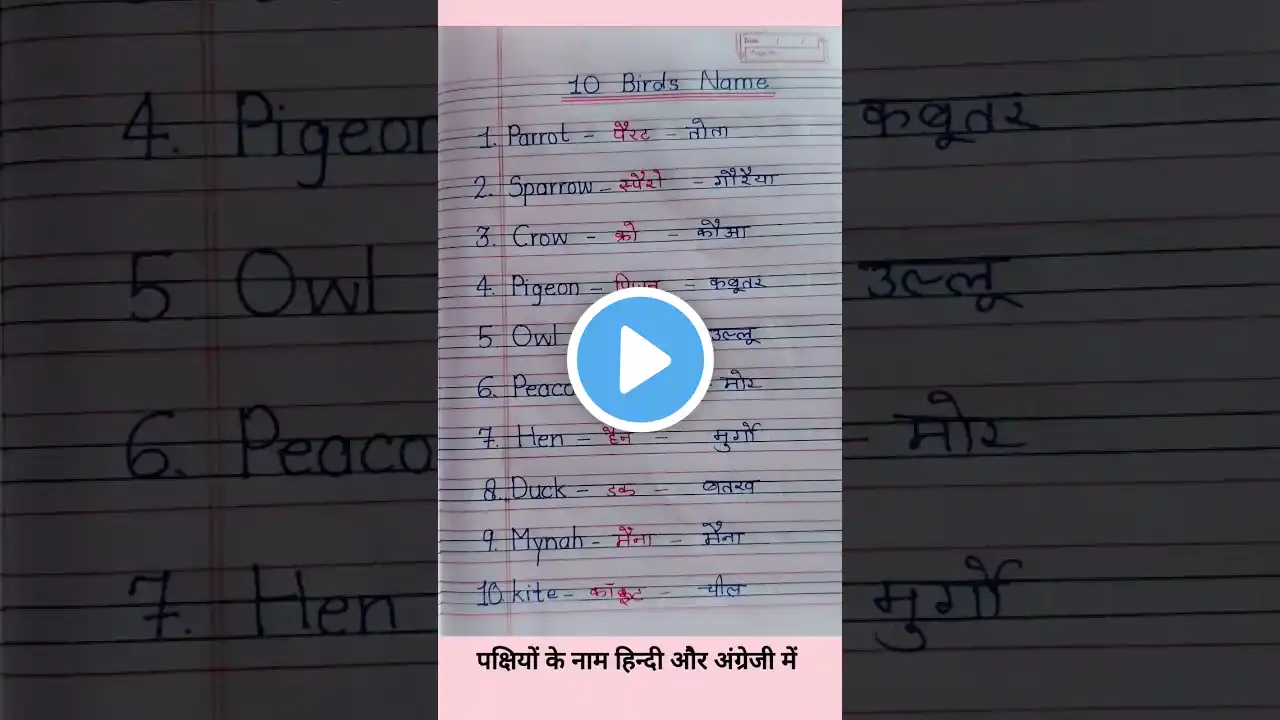 Date / /
Page No.
10 Birds Name
1. Parrot - पैरट - तोता
2. Sparrow - स्पैरो - गौरैया
3. Crow - क्रो - कौआ
4. Pigeon - = कबूतर
5. Owl उल्लू
6. Peaco - मोर
7. Hen - हैन - मुर्गी
8. Duck - डक - बतख
9. Mynah - मैना - मैना
10 kite - - चील
पक्षियों के नाम हिन्दी और अंग्रेजी में
4. Pigeon कबूतर
5 Owl उल्लू
6. Peaco - मोर
7. Hen मुर्गी